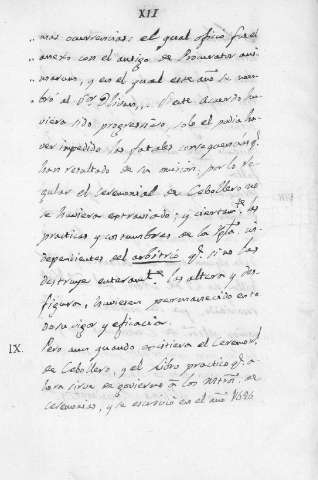 XII
„ mas ocurrencias: el qual oficio fue el
„ anexo con el antigo de Procurator ani-
„ marum, y en el qual este año se nom-
„ bró al
Si este Acuerdo hu-
viera sido progresivo, solo el podia ha-
ver impedido las fatales consequencias q.e
han resultado de su omision, por lo re-
gular el Ceremonial de Cebollero no
se huviera extraviado; y ciertam.te las
practicas y costumbres de la Ygl.a in-
dependientes del arbitrio q.e si no las
destruye enteram.te las altera y des-
figura, huviesen permanecido en to-
do su vigor y eficacia.
IX. Pero aun quando existiera el Ceremon.l
de Cebollero, y el libro practico q.e a-
hora sirve de govierno a los Mtros. de
Ceremonias, y se escrivió en el año 1696